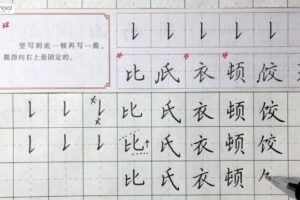 hool
竖写到底一顿再写一提。
提指向右上是固定的。
比 氏 衣 顿 饺
比 氏 衣 顿 饺
比 氏 衣 顿 饺
比 氏 衣 顿